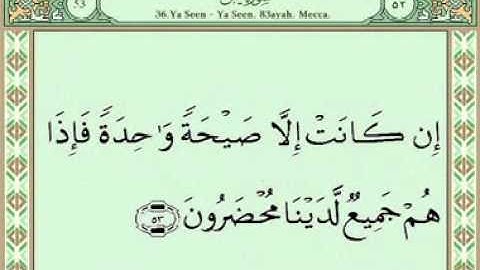 53 36.Ya Seen - Ya Seen. 83ayah. Mecca. ٥٣
إِن كَانَتْ إِلَّا صَيْحَةً وَٰحِدَةً فَإِذَا
هُمْ جَمِيعٌ لَّدَيْنَا مُحْضَرُونَ ٥٣